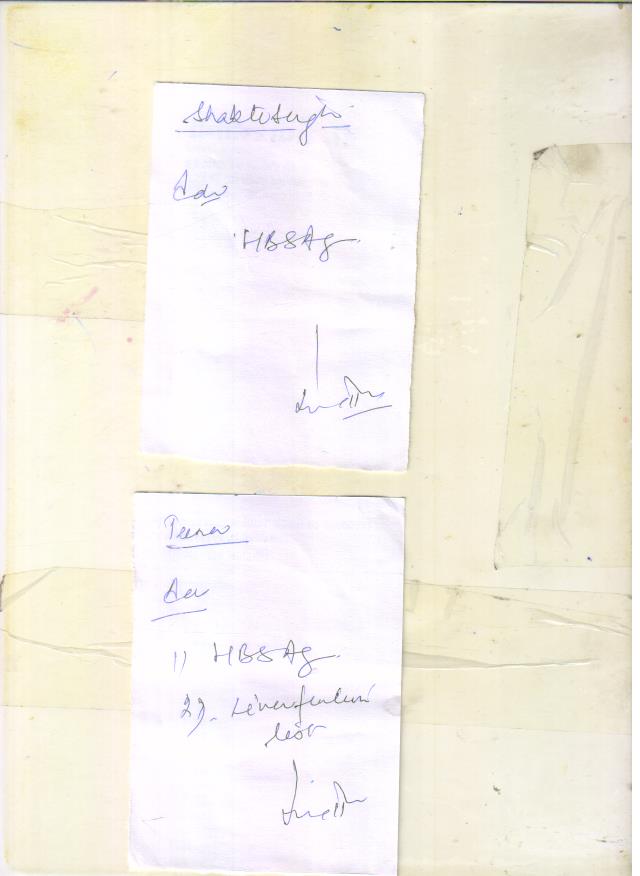 Shakti Singh
Adv
HBSAg
Adv
1) HBSAg
2). Liver function
test